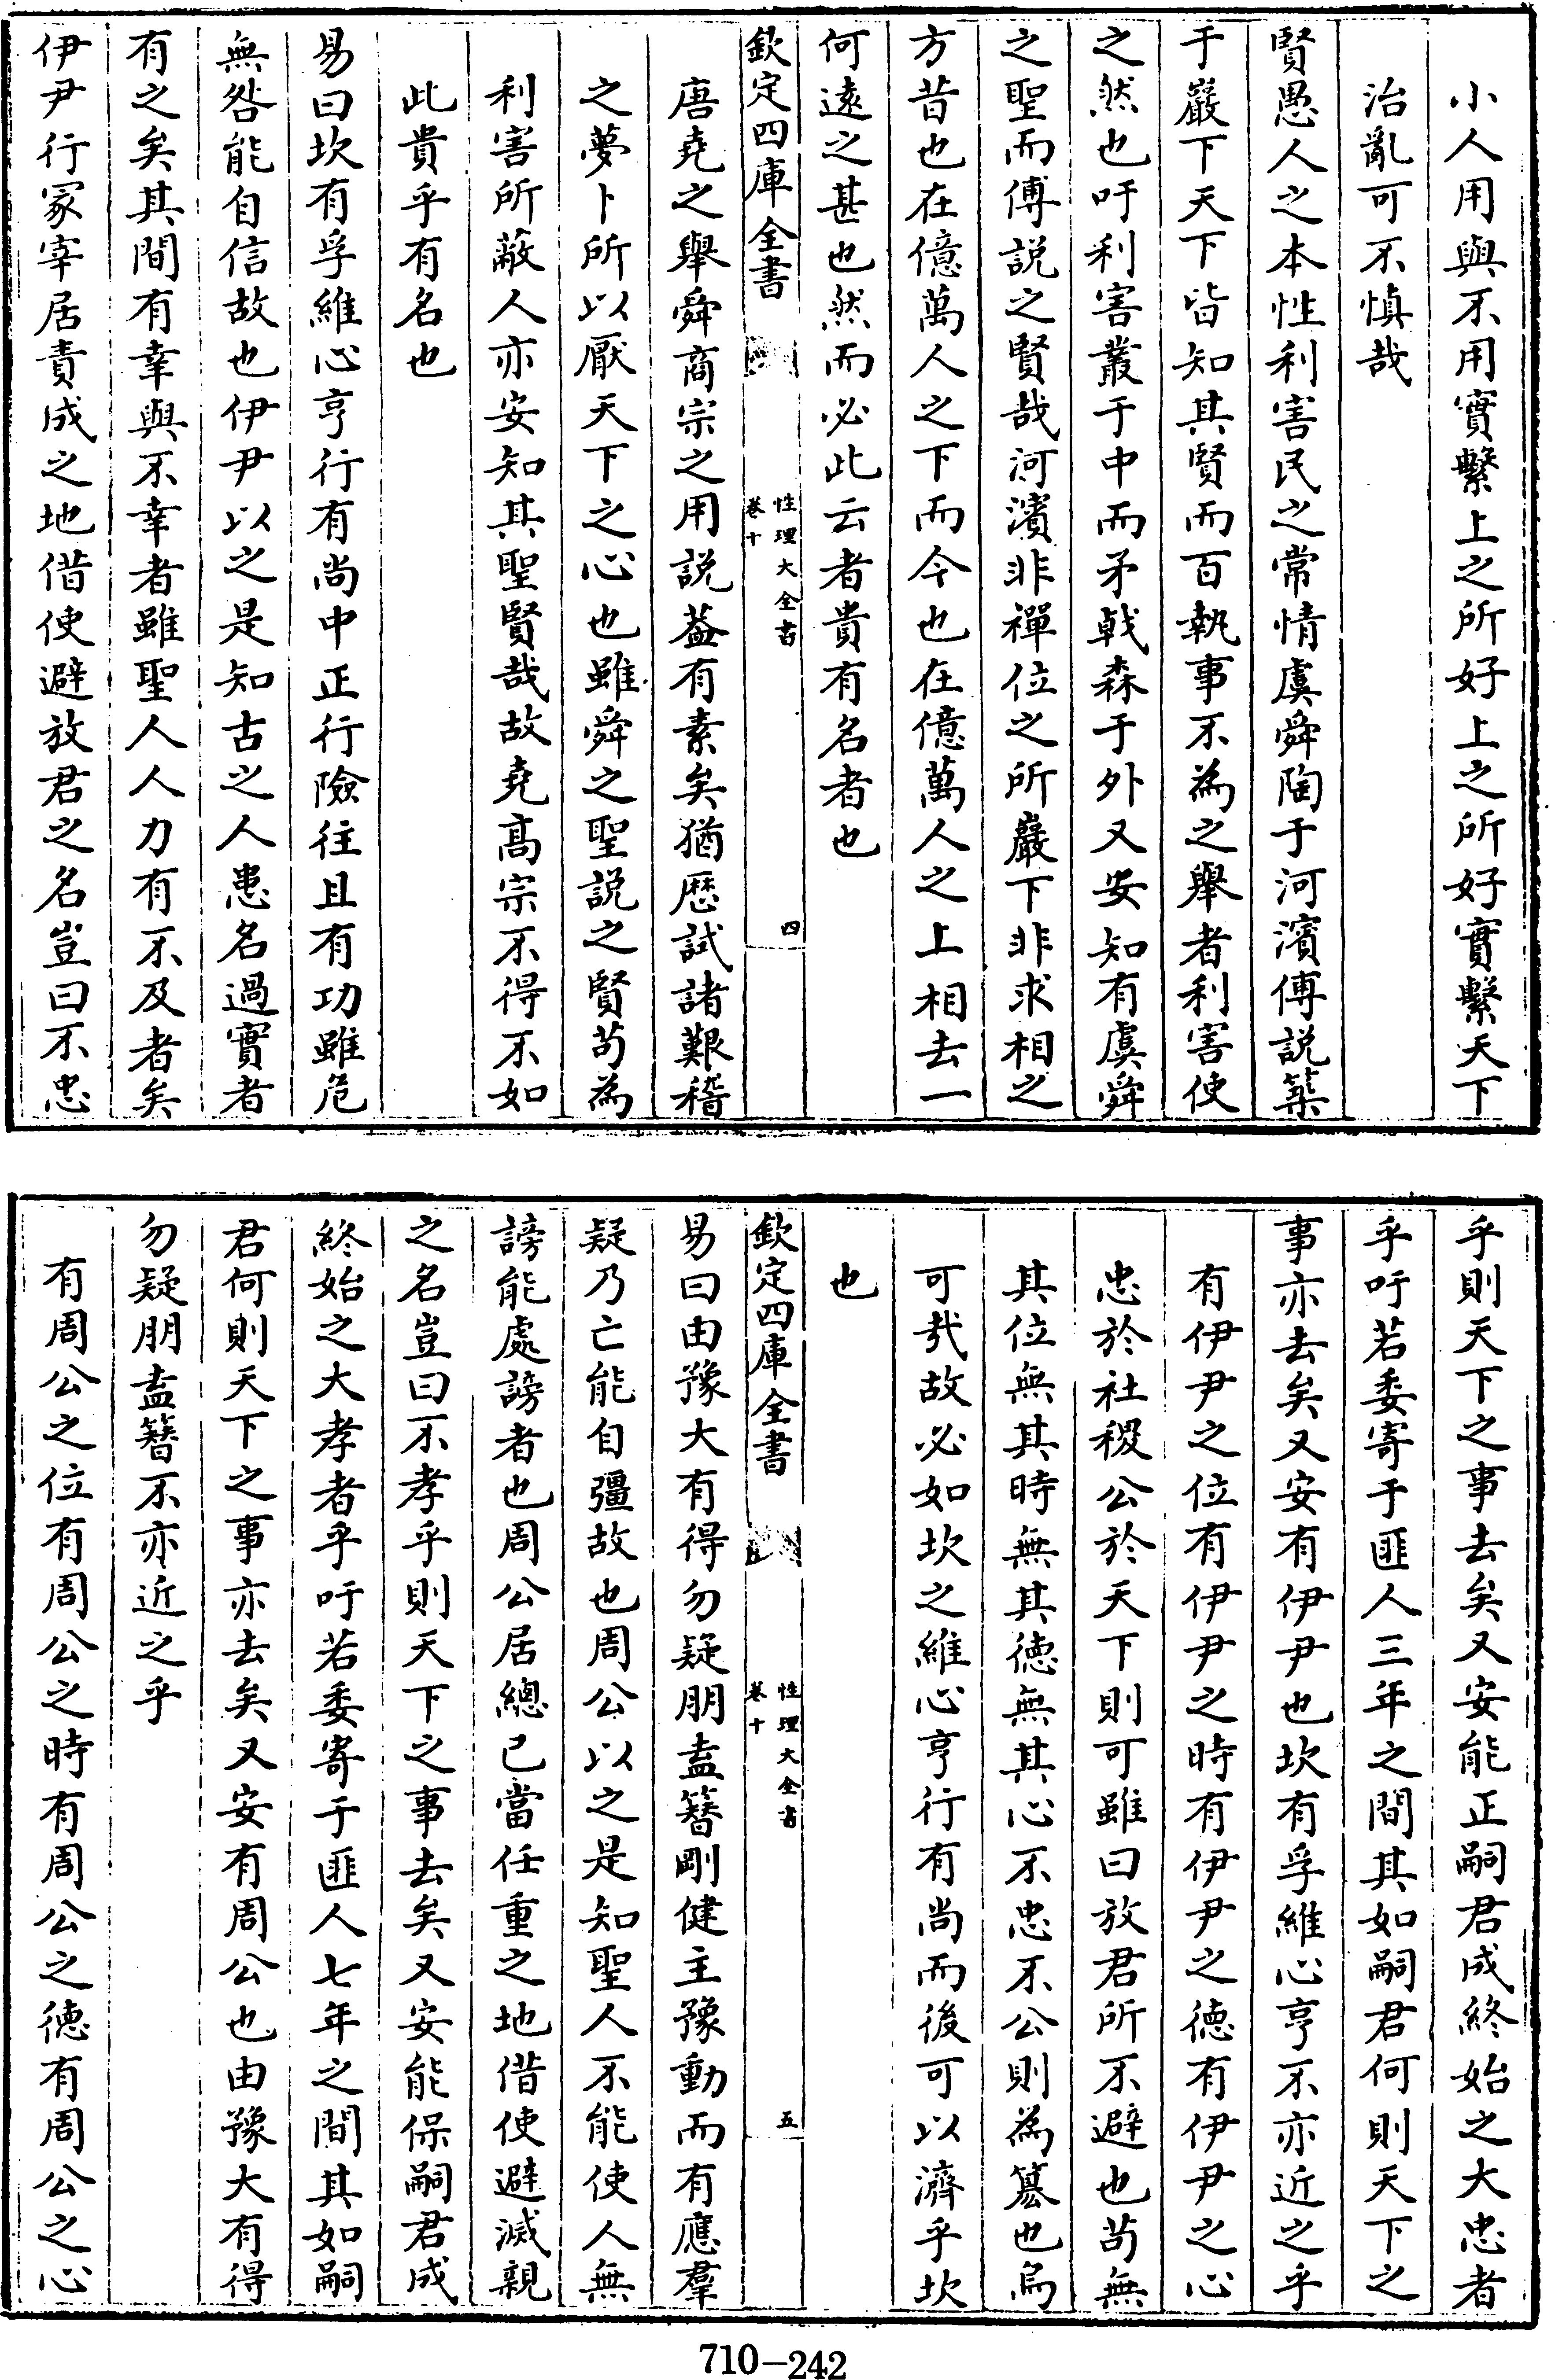 小人用與不用實繫上之所好上之所好實繫天下
治亂可不慎哉
賢愚人之本性利害民之常情虞舜陶于河濱傅説築
于巖下天下皆知其賢而百執事不為之舉者利害使
之然也吁利害叢于中而矛戟森于外又安知有虞舜
之聖而傅説之賢哉河濱非禪位之所巖下非求相之
方昔也在億萬人之下而今也在億萬人之上相去一
何遠之甚也然而必此云者貴有名者也
欽定四庫全書
性理大全書
卷十
四
唐堯之舉舜商宗之用説葢有素矣猶歴試諸艱稽
之夢卜所以厭天下之心也雖舜之聖説之賢苟為
利害所蔽人亦安知其聖賢哉故堯髙宗不得不如
此貴乎有名也
易曰坎有孚維心亨行有尚中正行險往且有功雖危
無咎能自信故也伊尹以之是知古之人患名過實者
有之矣其間有幸與不幸者雖聖人人力有不及者矣
伊尹行冡宰居責成之地借使避放君之名豈曰不忠
乎則天下之事去矣又安能正嗣君成終始之大忠者
乎吁若委寄于匪人三年之間其如嗣君何則天下之
事亦去矣又安有伊尹也坎有孚維心亨不亦近之乎
有伊尹之位有伊尹之時有伊尹之德有伊尹之心
忠於社稷公於天下則可雖曰放君所不避也苟無
其位無其時無其德無其心不忠不公則為簒也烏
可㦲故必如坎之維心亨行有尚而後可以濟乎坎
也
欽定四庫全書
性理大全書
卷十
五
易曰由豫大有得勿疑朋盍簪剛健主豫動而有應羣
疑乃亡能自彊故也周公以之是知聖人不能使人無
謗能處謗者也周公居總己當任重之地借使避滅親
之名豈曰不孝乎則天下之事去矣又安能保嗣君成
終始之大孝者乎吁若委寄于匪人七年之間其如嗣
君何則天下之事亦去矣又安有周公也由豫大有得
勿疑朋盍簪不亦近之乎
有周公之位有周公之時有周公之德有周公之心
710-242